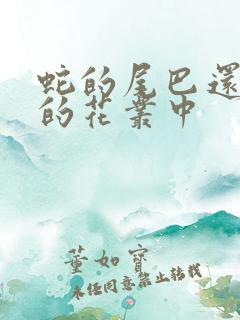 蛇的尾巴還
的花叢中
董如寶
未經同意禁止轉載